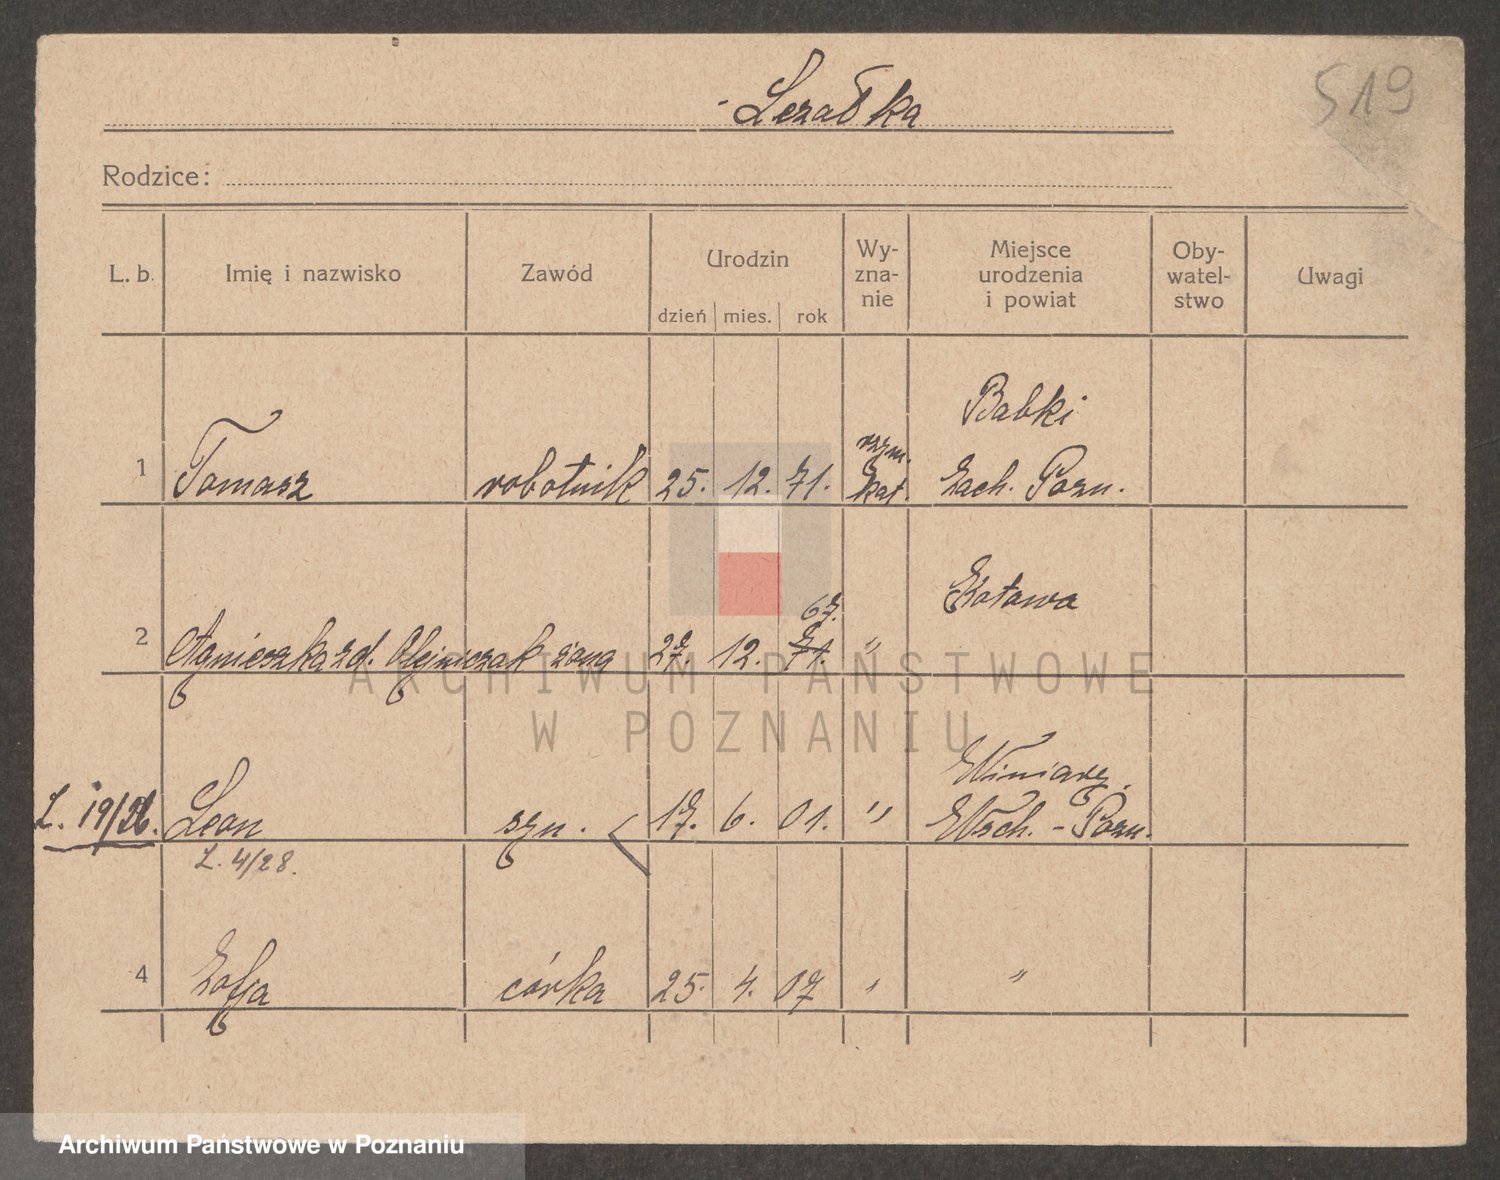 Lezałka
519
Rodzice:
L. b. Imię i nazwisko Zawód Urodzin dzień mies. rok Wy-zna-nie Miejsce urodzenia i powiat Oby-watel-stwo Uwagi
Babki
1 Tomasz robotnik 25. 12. 71. rzym. kat. Zach. Pozn.
67.
2 Agnieszka zd. Olejniczak żona 27. 12. 71. "
Winiary
L. 19/26. Leon syn. 17. 6. 01. " Wsch. - Pozn.
L. 4/28.
4 Zofja córka 25. 4. 07 " "
ARCHIWUM PAŃSTWOWE
W POZNANIU
Archiwum Państwowe w Poznaniu